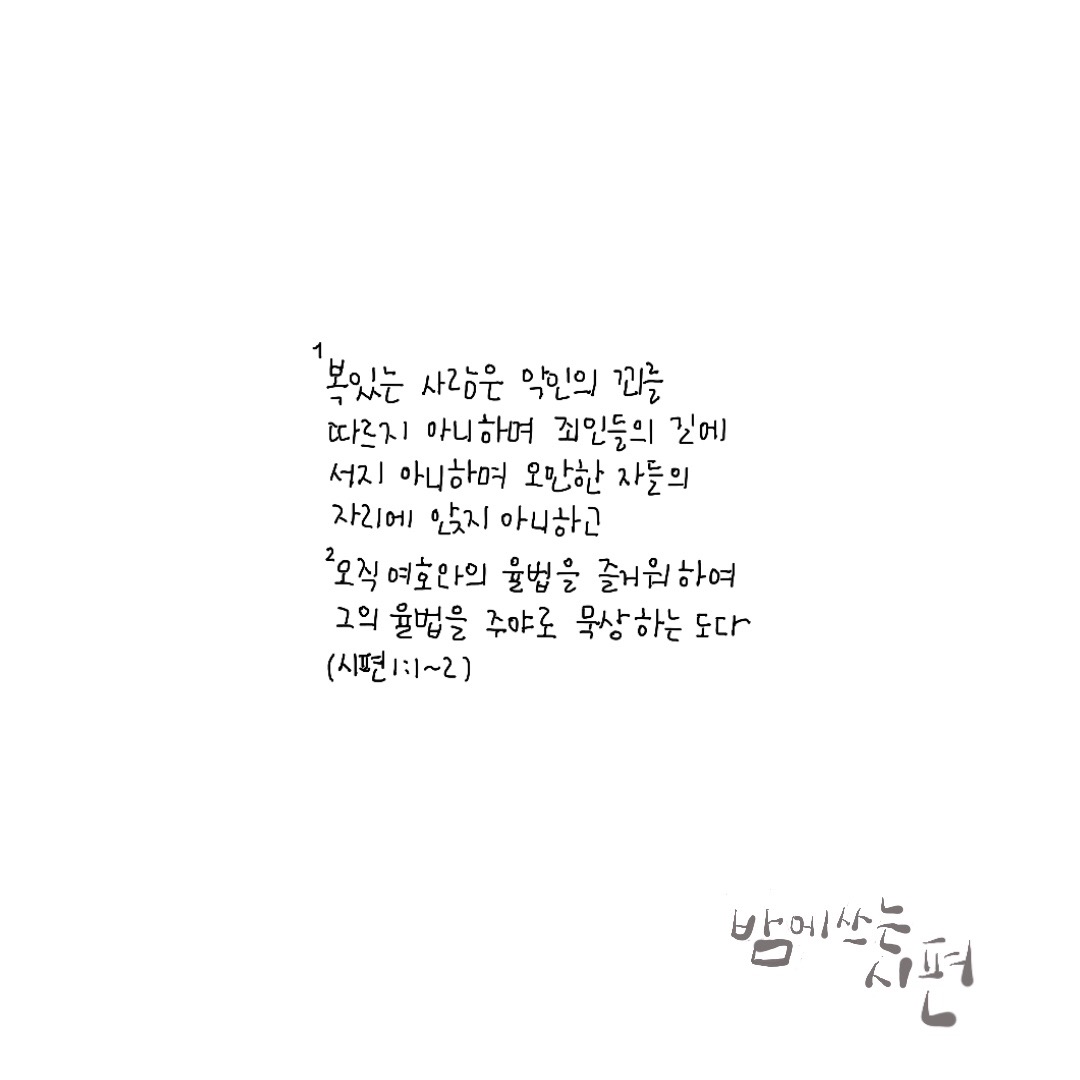 1 복있는 사람은 악인의 꾀를
따르지 아니하며 죄인들의 길에
서지 아니하며 오만한 자들의
자리에 앉지 아니하고
2 오직 여호와의 율법을 즐거워하여
그의 율법을 주야로 묵상하는 도다
(시편 1:1~2)
밤에쓰는
시편